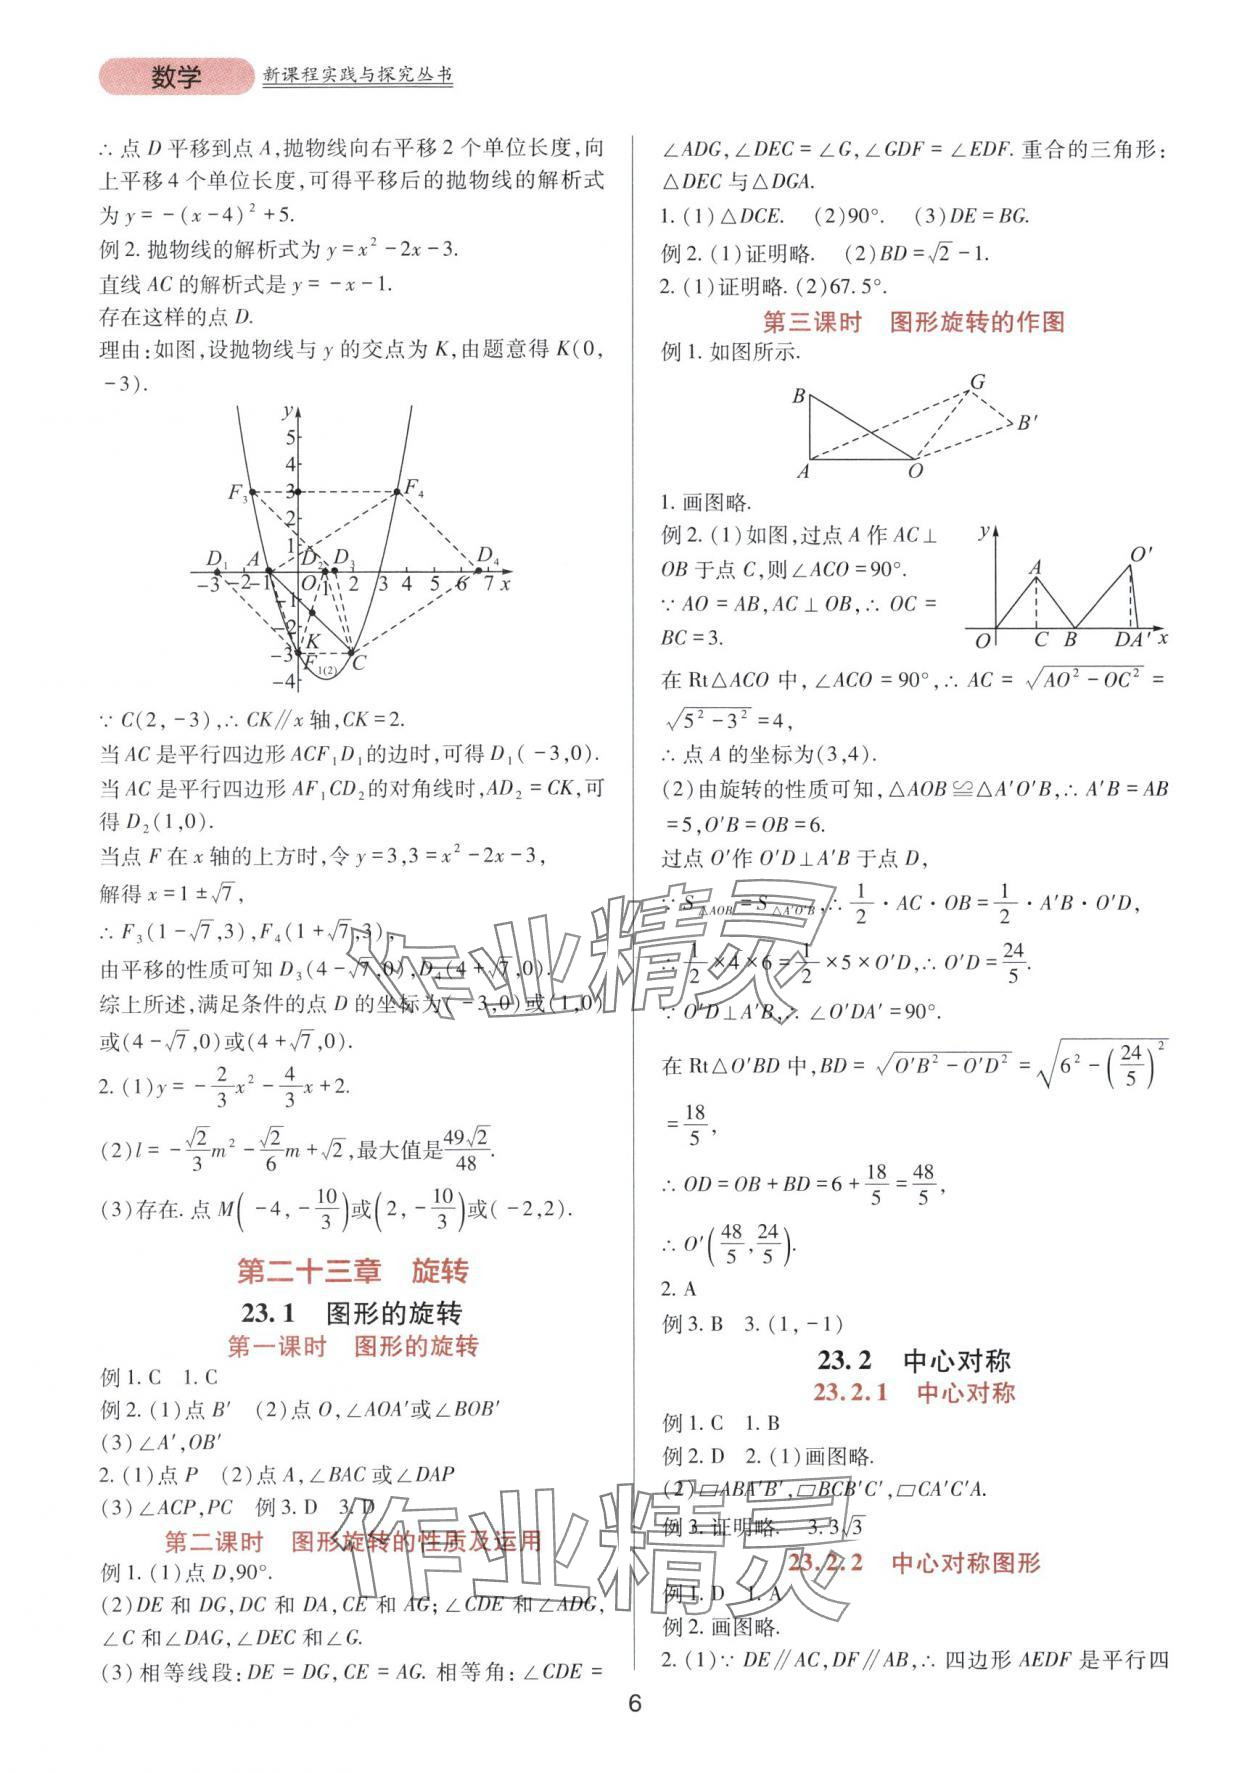 数学 新课程实践与探究丛书
∴点D平移到点A,抛物线向右平移2个单位长度,向
上平移4个单位长度,可得平移后的抛物线的解析式
为y=-(x-4)²+5.
例2.抛物线的解析式为y=x²-2x-3.
直线AC的解析式是y=-x-1.
存在这样的点D.
理由:如图,设抛物线与y的交点为K,由题意得K(0,
-3).
y
5
4
F₃ 3 F₄
2
1
D₁ A D₂ D₃ D₄
-3 -2 -1 O 1 2 3 4 5 6 7 x
-1
-2
K
-3
F₁₍₂₎ C
-4
∵C(2,-3),∴CK∥x轴,CK=2.
当AC是平行四边形ACF₁D₁的边时,可得D₁(-3,0).
当AC是平行四边形AF₁CD₂的对角线时,AD₂=CK,可
得D₂(1,0).
当点F在x轴的上方时,令y=3,3=x²-2x-3,
解得x=1±√7,
∴F₃(1-√7,3),F₄(1+√7,3),
由平移的性质可知D₃(4-√7,0),D₄(4+√7,0).
综上所述,满足条件的点D的坐标为(-3,0)或(1,0)
或(4-√7,0)或(4+√7,0).
2.(1)y=-2/3x²-4/3x+2.
(2)l=-√2/3m²-√2/6m+√2,最大值是49√2/48.
(3)存在.点M(-4,-10/3)或(2,-10/3)或(-2,2).
第二十三章 旋转
23.1 图形的旋转
第一课时 图形的旋转
例1.C 1.C
例2.(1)点B′ (2)点O,∠AOA′或∠BOB′
(3)∠A′,OB′
2.(1)点P (2)点A,∠BAC或∠DAP
(3)∠ACP,PC 例3.D 3.D
第二课时 图形旋转的性质及运用
例1.(1)点D,90°.
(2)DE和DG,DC和DA,CE和AG;∠CDE和∠ADG,
∠C和∠DAG,∠DEC和∠G.
(3)相等线段:DE=DG,CE=AG.相等角:∠CDE=
∠ADG,∠DEC=∠G,∠GDF=∠EDF.重合的三角形:
△DEC与△DGA.
1.(1)△DCE. (2)90°. (3)DE=BG.
例2.(1)证明略. (2)BD=√2-1.
2.(1)证明略.(2)67.5°.
第三课时 图形旋转的作图
例1.如图所示.
G
B
B′
A O
1.画图略.
例2.(1)如图,过点A作AC⊥
OB于点C,则∠ACO=90°.
∵AO=AB,AC⊥OB,∴OC=
BC=3.
y
O′
A
O C B D A′ x
在Rt△ACO中,∠ACO=90°,∴AC=√(AO²-OC²)=
√(5²-3²)=4,
∴点A的坐标为(3,4).
(2)由旋转的性质可知,△AOB≌△A′O′B,∴A′B=AB
=5,O′B=OB=6.
过点O′作O′D⊥A′B于点D,
∵S△AOB=S△A′O′B,∴1/2·AC·OB=1/2·A′B·O′D,
∴1/2×4×6=1/2×5×O′D,∴O′D=24/5.
∵O′D⊥A′B,∴∠O′DA′=90°.
在Rt△O′BD中,BD=√(O′B²-O′D²)=√(6²-(24/5)²)
=18/5,
∴OD=OB+BD=6+18/5=48/5,
∴O′(48/5,24/5).
2.A
例3.B 3.(1,-1)
23.2 中心对称
23.2.1 中心对称
例1.C 1.B
例2.D 2.(1)画图略.
(2)▱ABA′B′,▱BCB′C′,▱CA′C′A.
例3.证明略. 3.3√3
23.2.2 中心对称图形
例1.D 1.A
例2.画图略.
2.(1)∵DE∥AC,DF∥AB,∴四边形AEDF是平行四
6
作业精灵
作业精灵